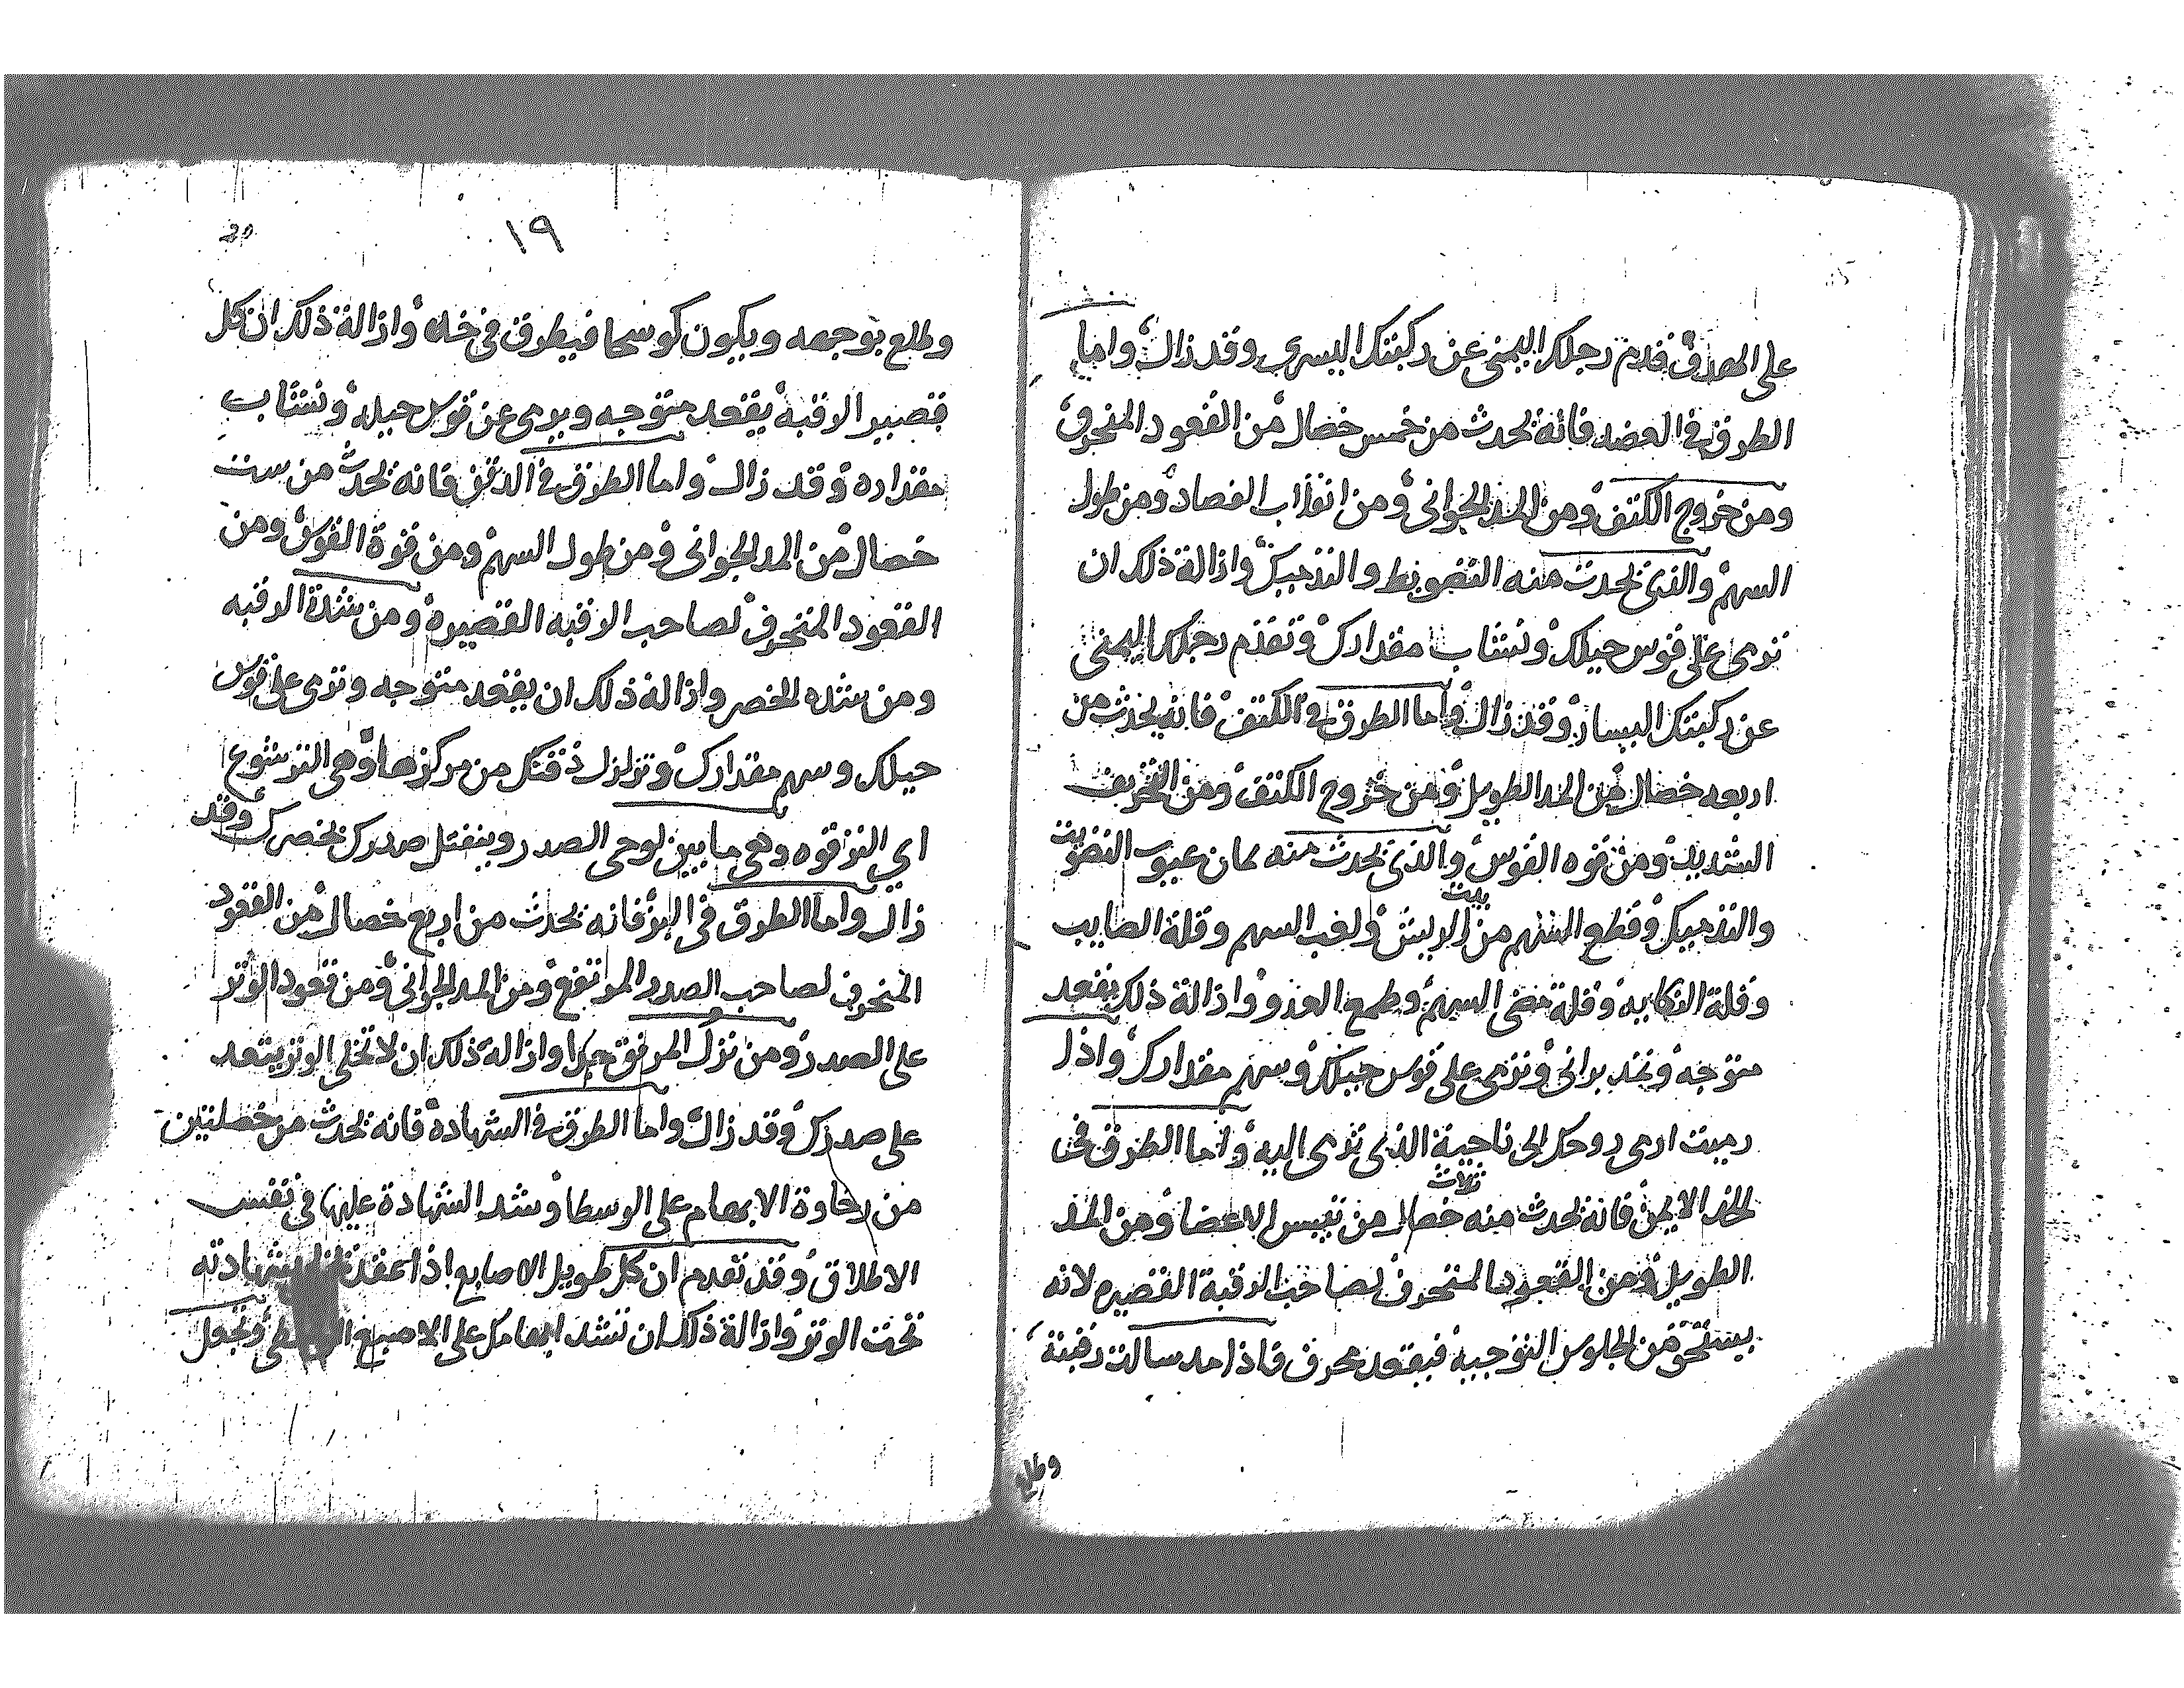 على المصدف فقدم رجلك اليمنى عن ركبتك اليسرى وقد زال واما
الطرق في العضد فانه يحدث من خمس خصال من القعود المنحرف
ومن خروج الكتف ومن المد الجواني ومن انقلاب الفصاد ومن طول
السهم والذي يحدث منه التضويط والتذحيك وازالة ذلك ان
ترمى على قوس حيلك ونشاب مقدارك وتقدم رجلك اليمنى
عن ركبتك اليسار وقد زال واما الطرق في الكتف فانه يحدث من
اربعه خصال من المد الطويل ومن خروج الكتف ومن التحريف
الشديد ومن قوه القوس والذي يحدث منه كان عيوب
والتذحيك وقطع السهم من بيت الريش ولعب السهم وقلة الصايب
وقلة النكايه وقلة مضى السهم وطمع العدو وازالة ذلك يقعد
متوجه وتمد براني وترمى على قوس حيلك وسهم مقدارك واذا
رميت ارمى روحك الى ناحية الذي ترمى اليه واما الطرق في
الخد الايمن فانه يحدث منه ثلاث خصال من تيبيس الاعضا ومن المد
الطويل ومن القعود المنحرف لصاحب الرقبة القصيره لانه
يستحق من الجلوس التوجيه فيقعد محرف فاذا مد سالت رقبته
وطلع
١٩
وطلع بوجهه ويكون كوسحا فيطرق في خده وازالة ذلك ان كل
قصير الرقبة يقعد متوجه ويرمى عن قوس حيله ونشاب
مقداره وقد زال واما الطرق في الدقن فانه يحدث من ست
خصال من المد الجواني ومن طول السهم ومن قوة القوس ومن
القعود المنحرف لصاحب الرقبه القصيره ومن شدة الرقبه
ومن شده الخصر وازالة ذلك ان يقعد متوجه وترمى على قوس
حيلك وسهم مقدارك وتزلزل دقنك من مركزها وهي الترشوع
اي الترقوه وهي ما بين لوحي الصدر وينفتل صدرك بخصرك وقد
زال واما الطرق في البز فانه يحدث من اربع خصال من القعود
المنحرف لصاحب الصدر المرتفع ومن المد الجواني ومن قعود الوتر
على الصدر ومن نزل المرفق جدا وازالة ذلك ان لا تخلي الوتر يقعد
على صدرك وقد زال واما الطرق في الشهادة فانه يحدث من خصلتين
من رخاوة الابهام على الوسطا وشد الشهادة عليها في نفس
الاطلاق وقد تقدم ان كل طويل الاصابع اذا عقد شهادته
تحت الوتر وازالة ذلك ان تشد ابهامك على الاصبع وتجعل